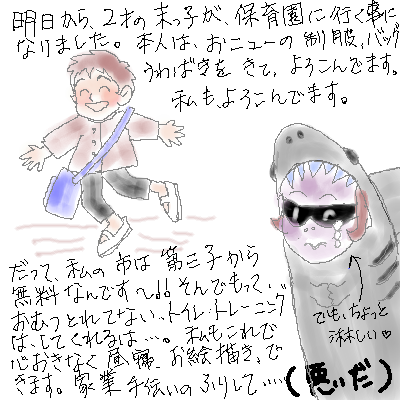 明日から、2才の末っ子が、保育園に行く事に
なりました。本人は、おニューの制服、バッグ
うわばきをきて、よろこんでます。
私も、よろこんでます。
だって、私の市は第三子から
無料なんです〜!! そんでもって、、
おむつとれてない、トイレ・トレーニング
は、してくれるは…。私もこれで
心おきなく昼寝、お絵描き、で
きます。家業手伝いのふりして……
(悪いだ)
でも、ちょっと
淋しい♡